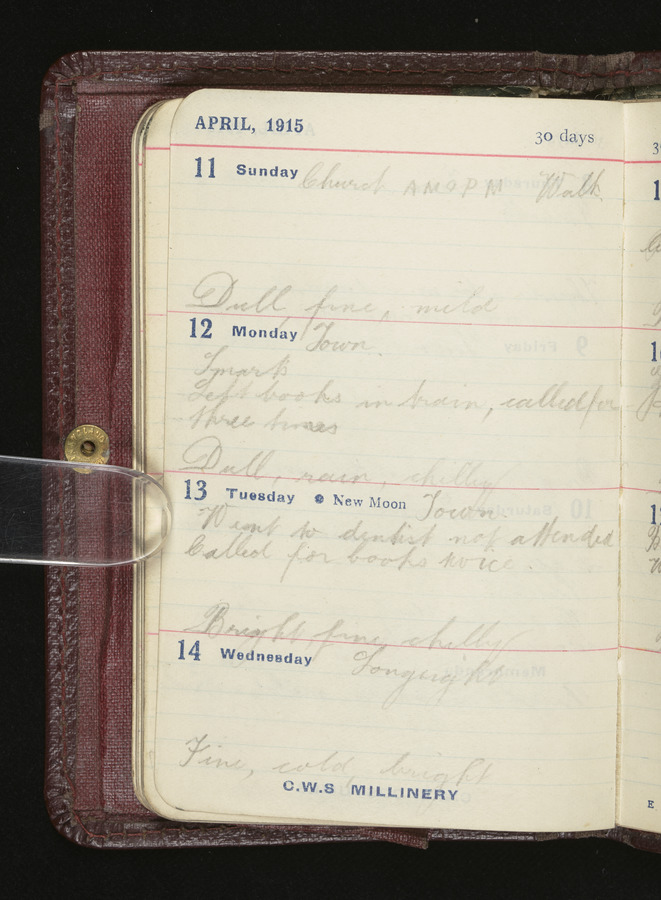 APRIL, 1915 30 days
11 Sunday Church A M & P M Walk
Dull, fine, mild
12 Monday Town.
Smarts
Left books in train, called for
three times
Dull, rain, chilly
13 Tuesday New Moon Town
Went to dentist not attended
Called for books twice.
Bright, fine, chilly
14 Wednesday Longsight
Fine, cold, bright
C.W.S MILLINERY